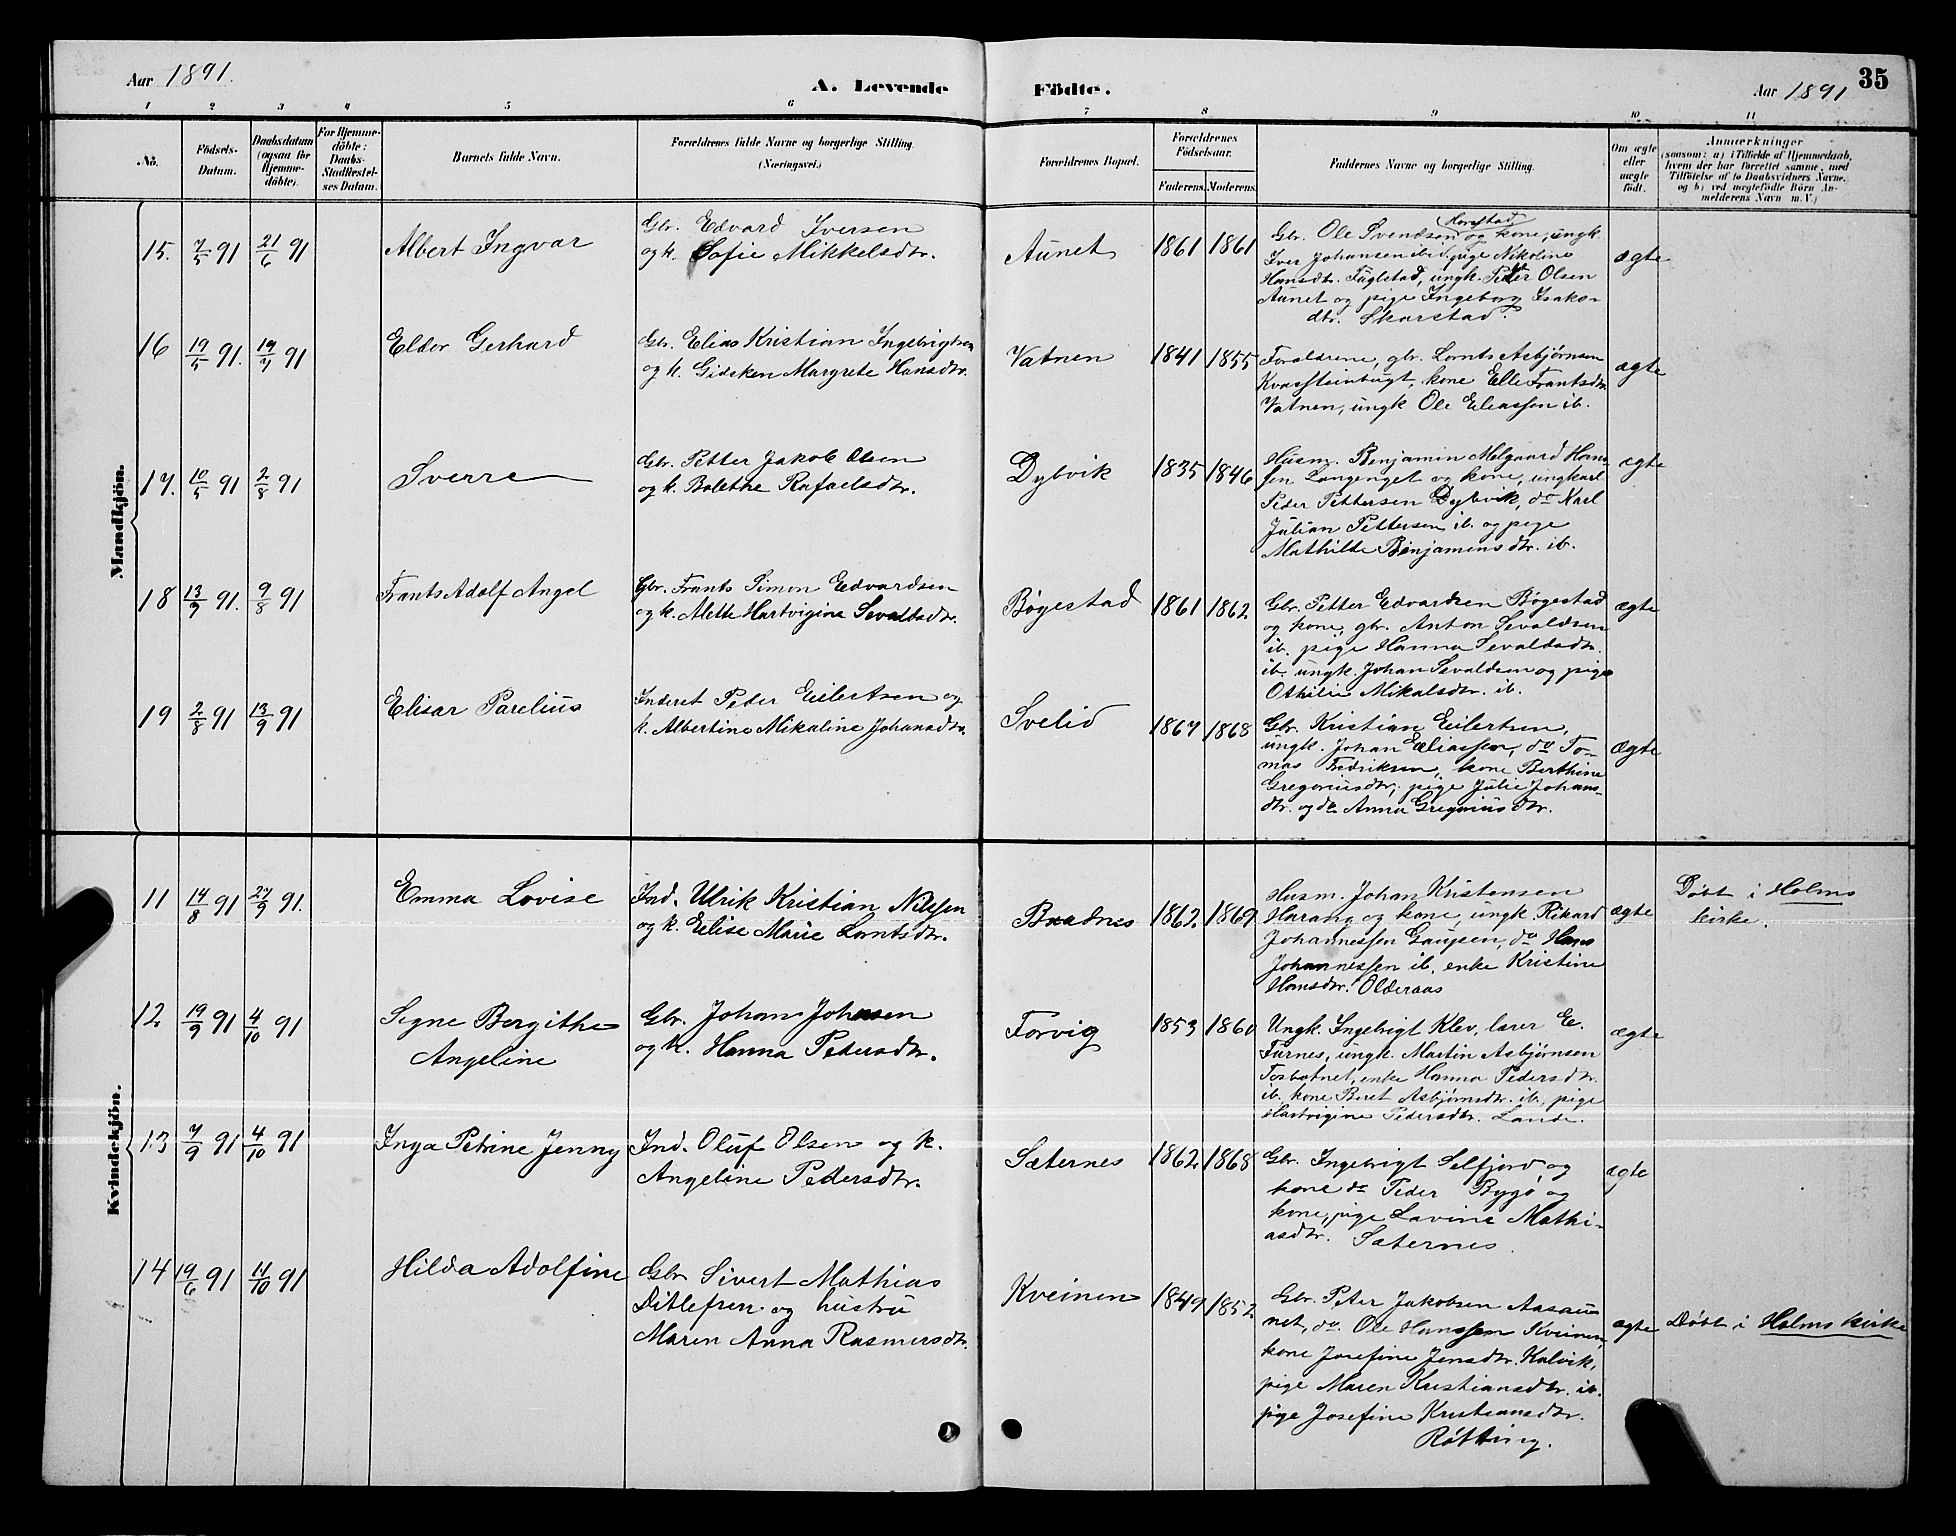 Aar 1891. A. Levende Födte. Aar 1891 35
1 2 3 4 5 6 7 8 9 10 11
No.
Födsels-
Datum.
Daabsdatum
(ogsaa for
Hjemme-
döbte).
For Hjemme-
döbte:
Daabs-
Stadfæstel-
ses Datum.
Barnets fulde Navn.
Forældrenes fulde Navne og borgerlige Stilling
(Næringsvei.)
Forældrenes Bopæl.
Forældrenes
Födselsaar.
Faderens. Moderens.
Faddernes Navne og borgerlige Stilling.
Om ægte
eller
uægte
født.
Anmærkninger
(saasom: a) i Tilfælde af Hjemmedaab,
hvem der har forrettet samme, med
Tilföielse af to Daabsvidners Navne,
og b) ved uægtefödte Börn An-
melderens Navn m. V.)
Mandkjön.
15. 7/5 91 21/6 91
Albert Ingvar
Gbr. Edvard Iversen
og k. Sofie Mikkelsdtr.
Aunet 1861 1861
Horstad
Gbr. Ole Svendsen og kone, ungk.
Iver Johansen ibid, pige Nikoline
Hansdtr. Fuglstad, ungk. Peder Olsen
Aunet og pige Ingeborg Isaks-
dtr. Skarstad.
ægte
16 19/5 91. 19/7 91
Eldor Gerhard
Gbr. Elias Kristian Ingebrigtsen
og k. Gidsken Margrete Hansdtr.
Vatnen 1841 1855
Forældrene, gbr. Lornts Asbjørnsen
Kvasteinbugt, kone Elle Frantsdtr
Vatnen, ungk Ole Eliassen ib.
ægte
17. 10/5 91 2/8 91
Sverre
Gbr. Petter Jakob Olsen
og k. Bolethe Rafaelsdtr.
Dybvik 1835 1846
Husm. Benjamin Melgaard Han-
sen Langenget og kone, ungkarl
Peder Pettersen Dybvik, do Karl
Julian Pettersen ib. og pige
Mathilde Benjaminsdtr. ib.
ægte
18 13/7 91. 9/8 91
Frants Adolf Angel
Gbr. Frants Simon Edvardsen
og k. Alette Hartvigine Sevaldsdtr.
Bøgestad 1861 1862
Gbr. Petter Edvardsen Bøgestad
og kone, gbr. Anton Sevaldsen
ib. pige Hanna Sevaldsdtr.
ib. ungk. Johan Sevaldsen og pige
Othilie Mikalsdtr. ib.
ægte
19 2/8 91 13/9 91
Elisar Parelius
Inderst Peder Eilertsen og
k. Albertine Mikaline Johansdtr.
Svelid 1867 1868
Gbr. Kristian Eilertsen,
ungk. Johan Eliassen, do To-
mas Fredriksen, kone Berthine
Gregoriusdtr, pige Julie Johans-
dtr. og do Anna Gregoriusdtr.
Ægte
Kvindekjön.
11 14/8 91 27/9 91.
Emma Lovise
Ind. Ulrik Kristian Nilssen
og k. Elise Marie Lorntsdtr.
Bradnes 1862. 1869
Husm. Johan Kristensen
Harang og kone, ungk. Rikard
Johannessen Gaupen, do Hans
Johannessen ib, enke Kristine
Hansdtr. Olderaas
ægte
Døbt i Holms
kirke.
12. 19/9 91 4/10 91
Signe Bergithe
Angeline
Gbr. Johan Johansen
og k. Hanna Pedersdtr.
Forvig 1853 1860
Ungk. Ingebrigt Klev, lærer E.
Furnes, ungk. Martin Asbjørnsen
Tosbotnet, enke Hanna Pedersdtr.
ib, kone Beret Asbjørnsdtr. ib, pige
Hartvigine Pedersdtr. Lande.
ægte
13 7/9 91 4/10 91
Inga Petrine Jenny
Ind. Oluf Olsen og k.
Angeline Pedersdtr.
Sæternes 1862. 1868
Gbr. Ingebrigt Selfjord og
kone do Peder Bygø og
kone, pige Lavine Mathi-
asdtr. Sæternes.
ægte
14 19/6 91 11/10 91
Hilda Adolfine
Gbr Sivert Mathias
Ditlefsen og hustru
Maren Anna Rasmusdtr.
Kveinen 1849 1852.
Gbr. Peter Jakobsen Aasau-
net, do. Ole Hanssen Kveinen,
kone Josefine Jensdtr. Kalvik,
pige Maren Kristiansdtr. ib.
pige Josefine Kristiansdtr.
Røtting.
ægte
Døbt i Holms kirke